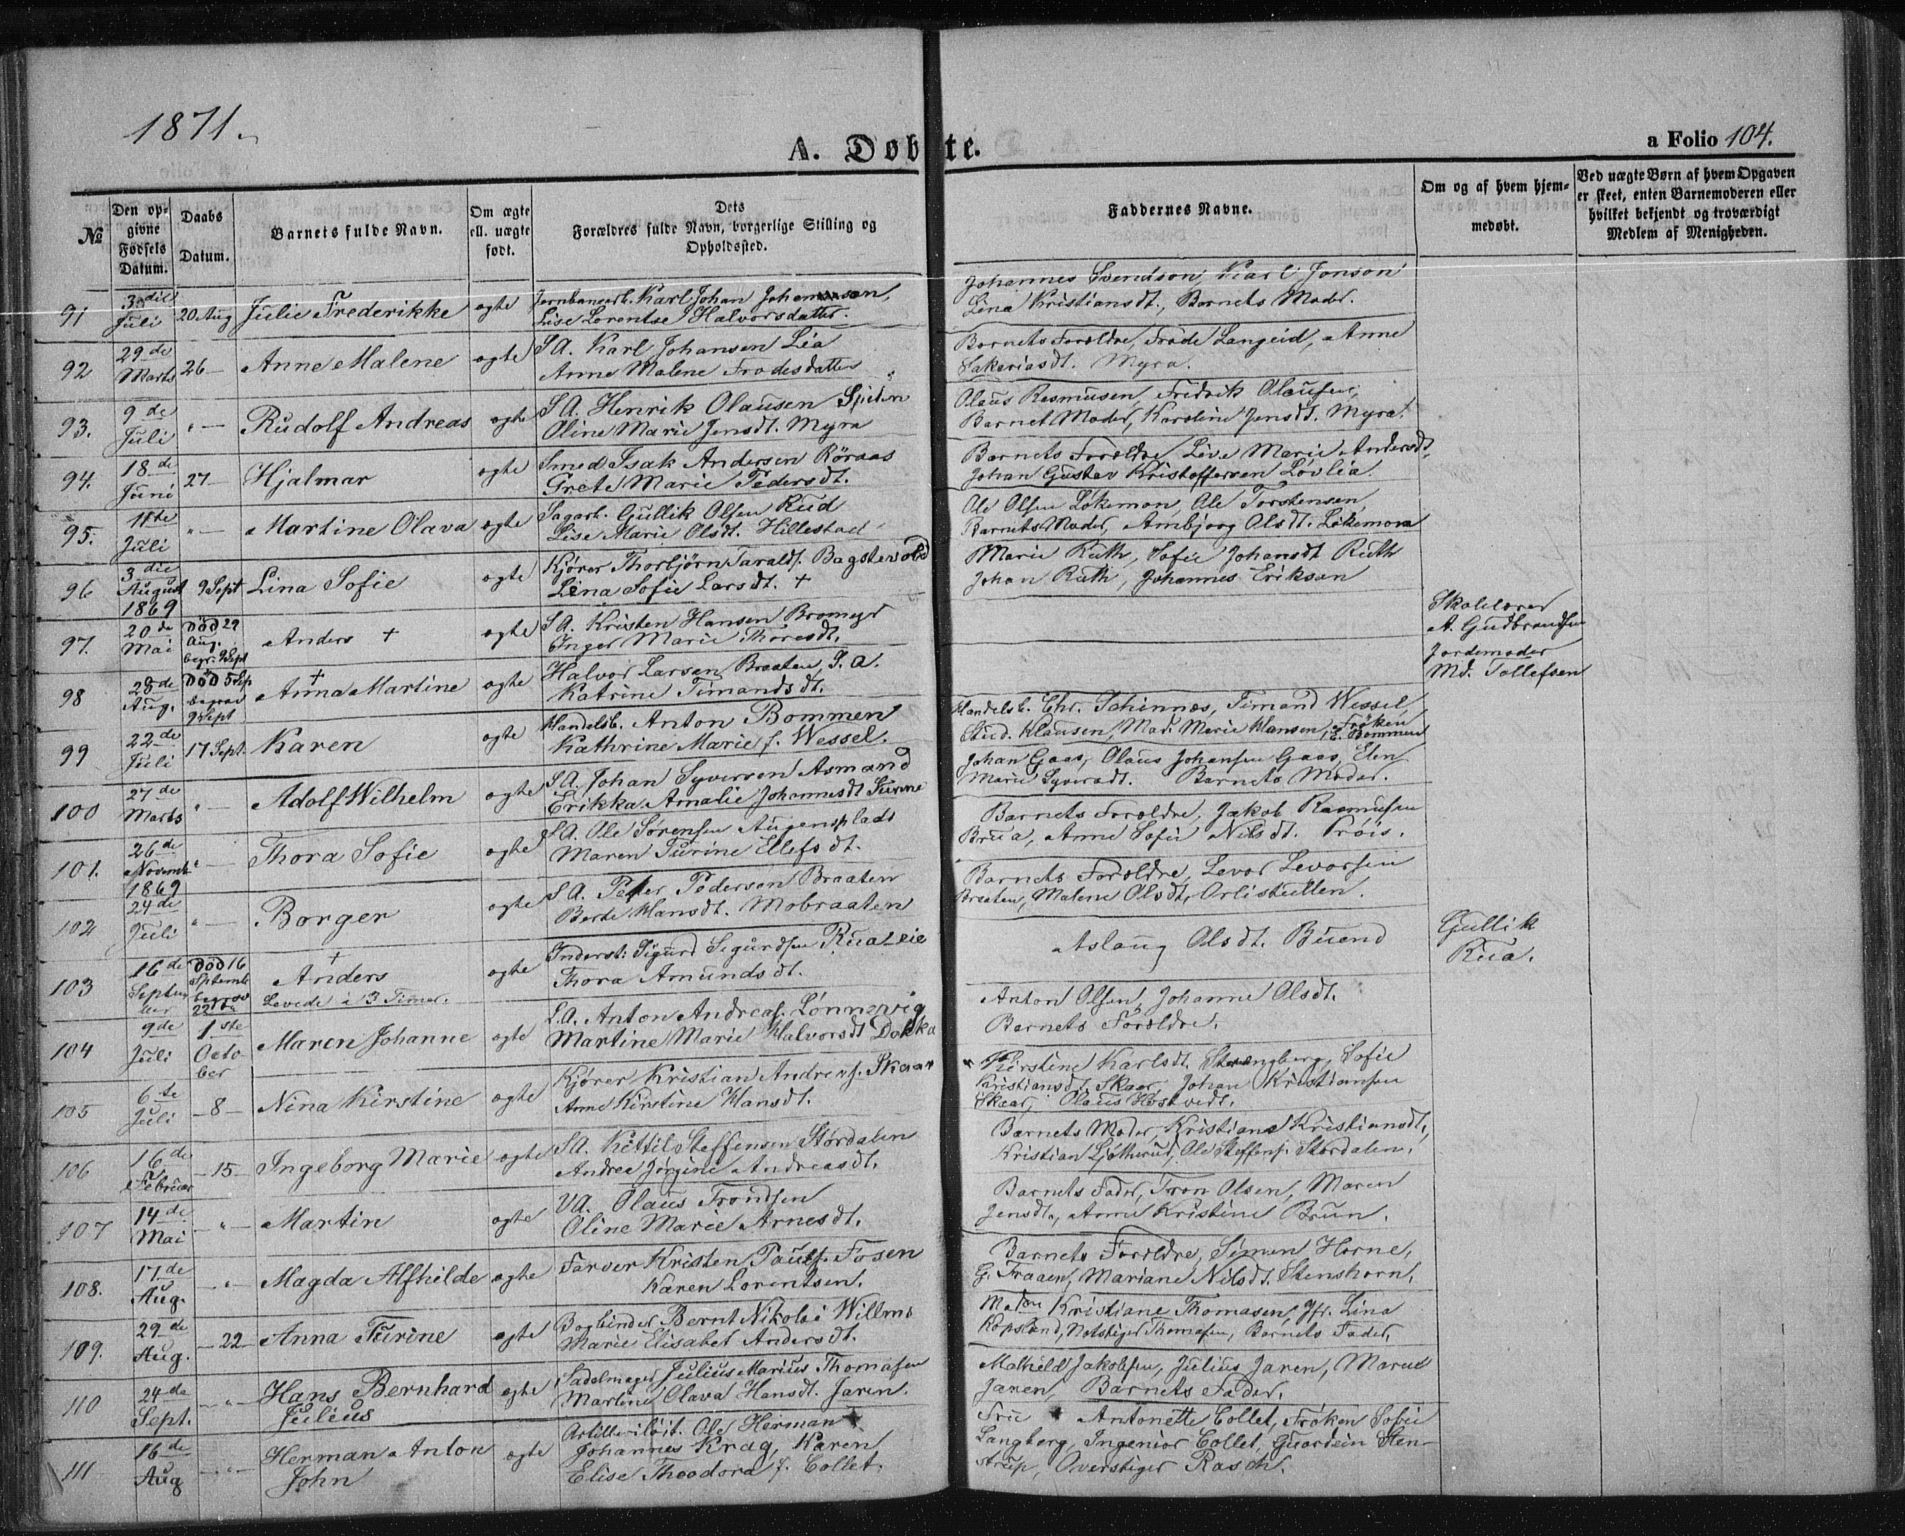 1871.
A. Døbte.
a Folio 104.
№
Den opgivne Fødsels Datum.
Daabs Datum.
Barnets fulde Navn.
Om ægte ell. uægte født.
Dets Forældres fulde Navn, borgerlige Stilling og Opholdssted.
Faddernes Navne.
Om og af hvem hjemmedøbt.
Ved uægte Børn af hvem Opgaven er skeet, enten Barnemoderen eller hvilket bekjendt og troværdigt Medlem af Menigheden.
91 Juli 20 Aug Julie Frederikke ægte Jernbanearb. Karl Johan
Lise Lorentse Halvorsdatter.
Johannes Svendsen, Karl Jonson
Lina Kristiansdt., Barnets Moder.
92 29de Marts 26 Anne Malene ægte SA. Karl Johansen Lia
Anne Malene Frodesdatter
Barnets Forældre, Frode Langeid, Anne
Sakariasdt. Myra.
93. 9de Juli " Rudolf Andreas ægte SA. Henrik Olausen
Oline Marie Jensdt. Myra
Olaus Rasmusen, Fredrik Olausen,
Barnet Moder, Karoline Jensdt. Myra.
94. 18de Juni 27 Hjalmar ægte Smed Isak Andersen Röraas
Grete Marie Pedersdt.
Barnets Forældre Live Marie Andersdt,
Johan Gustav Kristoffersen Lövlia.
95. 11te Juli " Martine Olava ægte Sagarb. Gullik Olsen Rud
Lise Marie Olsdt. Hillestad
Ole Olsen Lökemon, Ole Torstensen,
Barnets Moder, Ambjorg Olsdt. Lökemova
96 3die August 1869 9 Sept Lina Sofie ægte Kjörer Thorbjörn Taraldf.
Lina Sofie Larsdt. +
Marie Ruth, Sofie Johansdt Ruth
Johan Ruth, Johannes Eriksen
97. 20de Mai Död 29 Aug. begr. 9 Sept Anders + ægte SA. Kristen Hansen Bromyr
Inger Marie Thoresdt.
Skolelærer
A. Gudbrandsen
98 28de Aug. Död 5 Sep begrav 9 Sept Anna Martine + ægte Halvor Larsen Braaten S.A.
Katrine Timandsdt.
Jordemoder
Md. Tollefsen
99 22de Juli 17 Sept. Karen ægte Handelsb. Anton Bommen
Kathrine Marie f. Wessel.
Handelsb. Chr. Schinnes, Timand Wessel,
Stud. Klausen, Mad. Marie Hansen, Fröken E. Bommen
100 27de Marts " Adolf Wilhelm ægte SA. Johan Syversen Asmand
Erikka Amalie Johannesdt Turine
Johan Gaas, Olaus Johansen Gaas, Elen
Marie Syversdt. Barnets Moder.
101. 26de Novembr 1869 " Thora Sofie ægte SA. Ole Sörensen Augensplads
Maren Turine Ellefsdt.
Barnets Forældre, Jakob Rasmusen
Brua, Anne Sofie Nilsdt. Pröis.
102 24de Juli " Borger ægte SA. Peter Pedersen Braaten
Berte Hansdt. Mobraaten
Barnets Forældre, Levor Levorsen
Braaten, Malene Olsdt, Orlistullen.
103 16de September Död 16 Septemb begrav 22de Anders +
Levede i 3 Timer. ægte Inderst: Sigurd Sigurdsen Rualeie
Thora Amundsdt.
Aslaug Olsdt. Buend
Gullik
Rua.
104 9de Juli 1ste October Maren Johanne ægte S.A. Anton Andreas. Lönnevig
Martine Marie Halvorsdt Dokka
Anton Olsen, Johanne Olsdt.
Barnets Forældre.
105 6te Juli 8 Nina Kirstine ægte Kjörer Kristian Andreas. Skaar
Anne Kirstine Hansdt.
Kirstine Karlsdt. Strengberg, Sofie
Kristiansdt. Skaar, Johan Kristiansen
Skaar, Olaus Hostvedt.
106 16de Februar 15 Ingeborg Marie ægte SA. Kittil Steffensen Stordalen
Andrea Jörgine Andreasdt.
Barnets Moder, Kristiane Kristiansdt,
Kristian Ljötterud, Ole Steffens. Stordalen.
107 14de Mai " Martin ægte VA. Olaus Trondsen
Oline Marie Arnesdt.
Barnets Fader, Tron Olsen, Maren
Jensdt, Anne Kristine Brun.
108. 17de Aug. " Magda Alfhilde ægte Farver Kristen Pauls. Fosen
Karen Lorentsen.
Barnets Forældre, Simen Horne,
G. Fraaen, Mariane Nilsdt. Stenshorn.
109. 29de Aug. 22 Anna Turine ægte Bogbinder Bernt Nikolai Willms
Marie Elisabet Andersdt.
Kristiane Thomasen, Jfr. Lina
Kopsland, Thomasen, Barnets Fader.
110 24de Sept. " Hans Bernhard Julius ægte Sadelmager Julius Marius Thomasen
Martine Olava Hansdt. Jaren.
Mathilde Jakobsen, Julius Jaren, Marie
Jaren, Barnets Fader.
111 16de Aug " Herman Anton John ægte Artilleriløit. Ole Herman
Johannes Krag, Karen
Elise Theodora f. Collet.
Frue Antonette Collet, Fröken Sofie
Langberg, Ingeniör Collet, Guardein Stenstrup,
Overstiger Rasch.